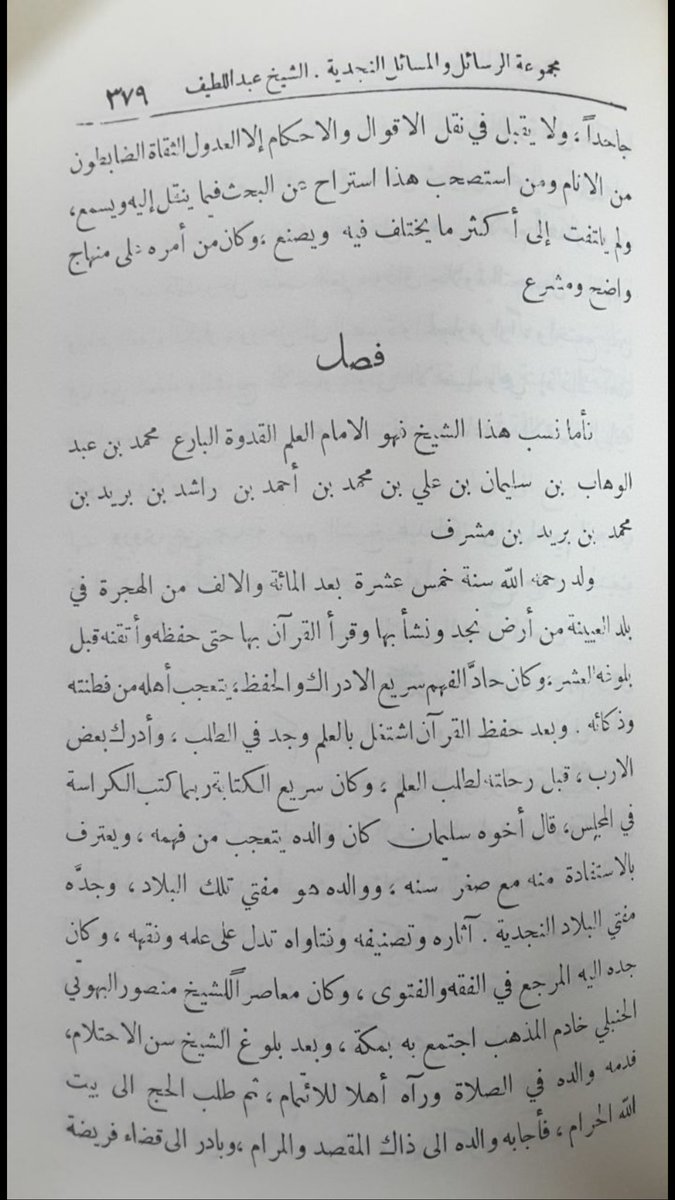 مجموعة الرسائل والمسائل النجدية . الشيخ عبداللطيف ٣٧٩
جاحداً ، ولا يقبل في نقل الاقوال والاحكام إلا العدول الثقاة الضابطون
من الانام ومن استصحب هذا استراح عن البحث فيما ينقل إليه ويسمع ،
ولم يلتفت إلى أكثر ما يختلف فيه ويصنع ، وكان من أمره على منهاج
واضح ومشرع
فصل
فأما نسب هذا الشيخ فهو الامام العلم القدوة البارع محمد بن عبد
الوهاب بن سليمان بن علي بن محمد بن أحمد بن راشد بن بريد بن
محمد بن بريد بن مشرف
ولد رحمه الله سنة خمس عشرة بعد المائة والالف من الهجرة في
بلد العيينة من أرض نجد ونشأ بها وقرأ القرآن بها حتى حفظه وأتقنه قبل
بلوغه العشر ، وكان حادَّ الفهم سريع الادراك والحفظ ، يتعجب أهله من فطنته
وذكائه . وبعد حفظ القرآن اشتغل بالعلم وجد في الطلب ، وأدرك بعض
الارب ، قبل رحلته لطلب العلم ، وكان سريع الكتابة ربما كتب الكراسة
في المجلس ، قال أخوه سليمان كان والده يتعجب من فهمه ، ويعترف
بالاستفادة منه مع صغر سنه ، ووالده هو مفتي تلك البلاد ، وجدَّه
مفتي البلاد النجدية . آثاره وتصنيفه وفتاواه تدل على علمه وفقهه ، وكان
جده اليه المرجع في الفقه والفتوى ، وكان معاصراً للشيخ منصور البهوتي
الحنبلي خادم المذهب اجتمع به بمكة ، وبعد بلوغ الشيخ سن الاحتلام ،
قدمه والده في الصلاة ورآه أهلا للائتمام ، ثم طلب الحج الى بيت
الله الحرام ، فأجابه والده الى ذاك المقصد والمرام ، وبادر الى قضاء فريضة